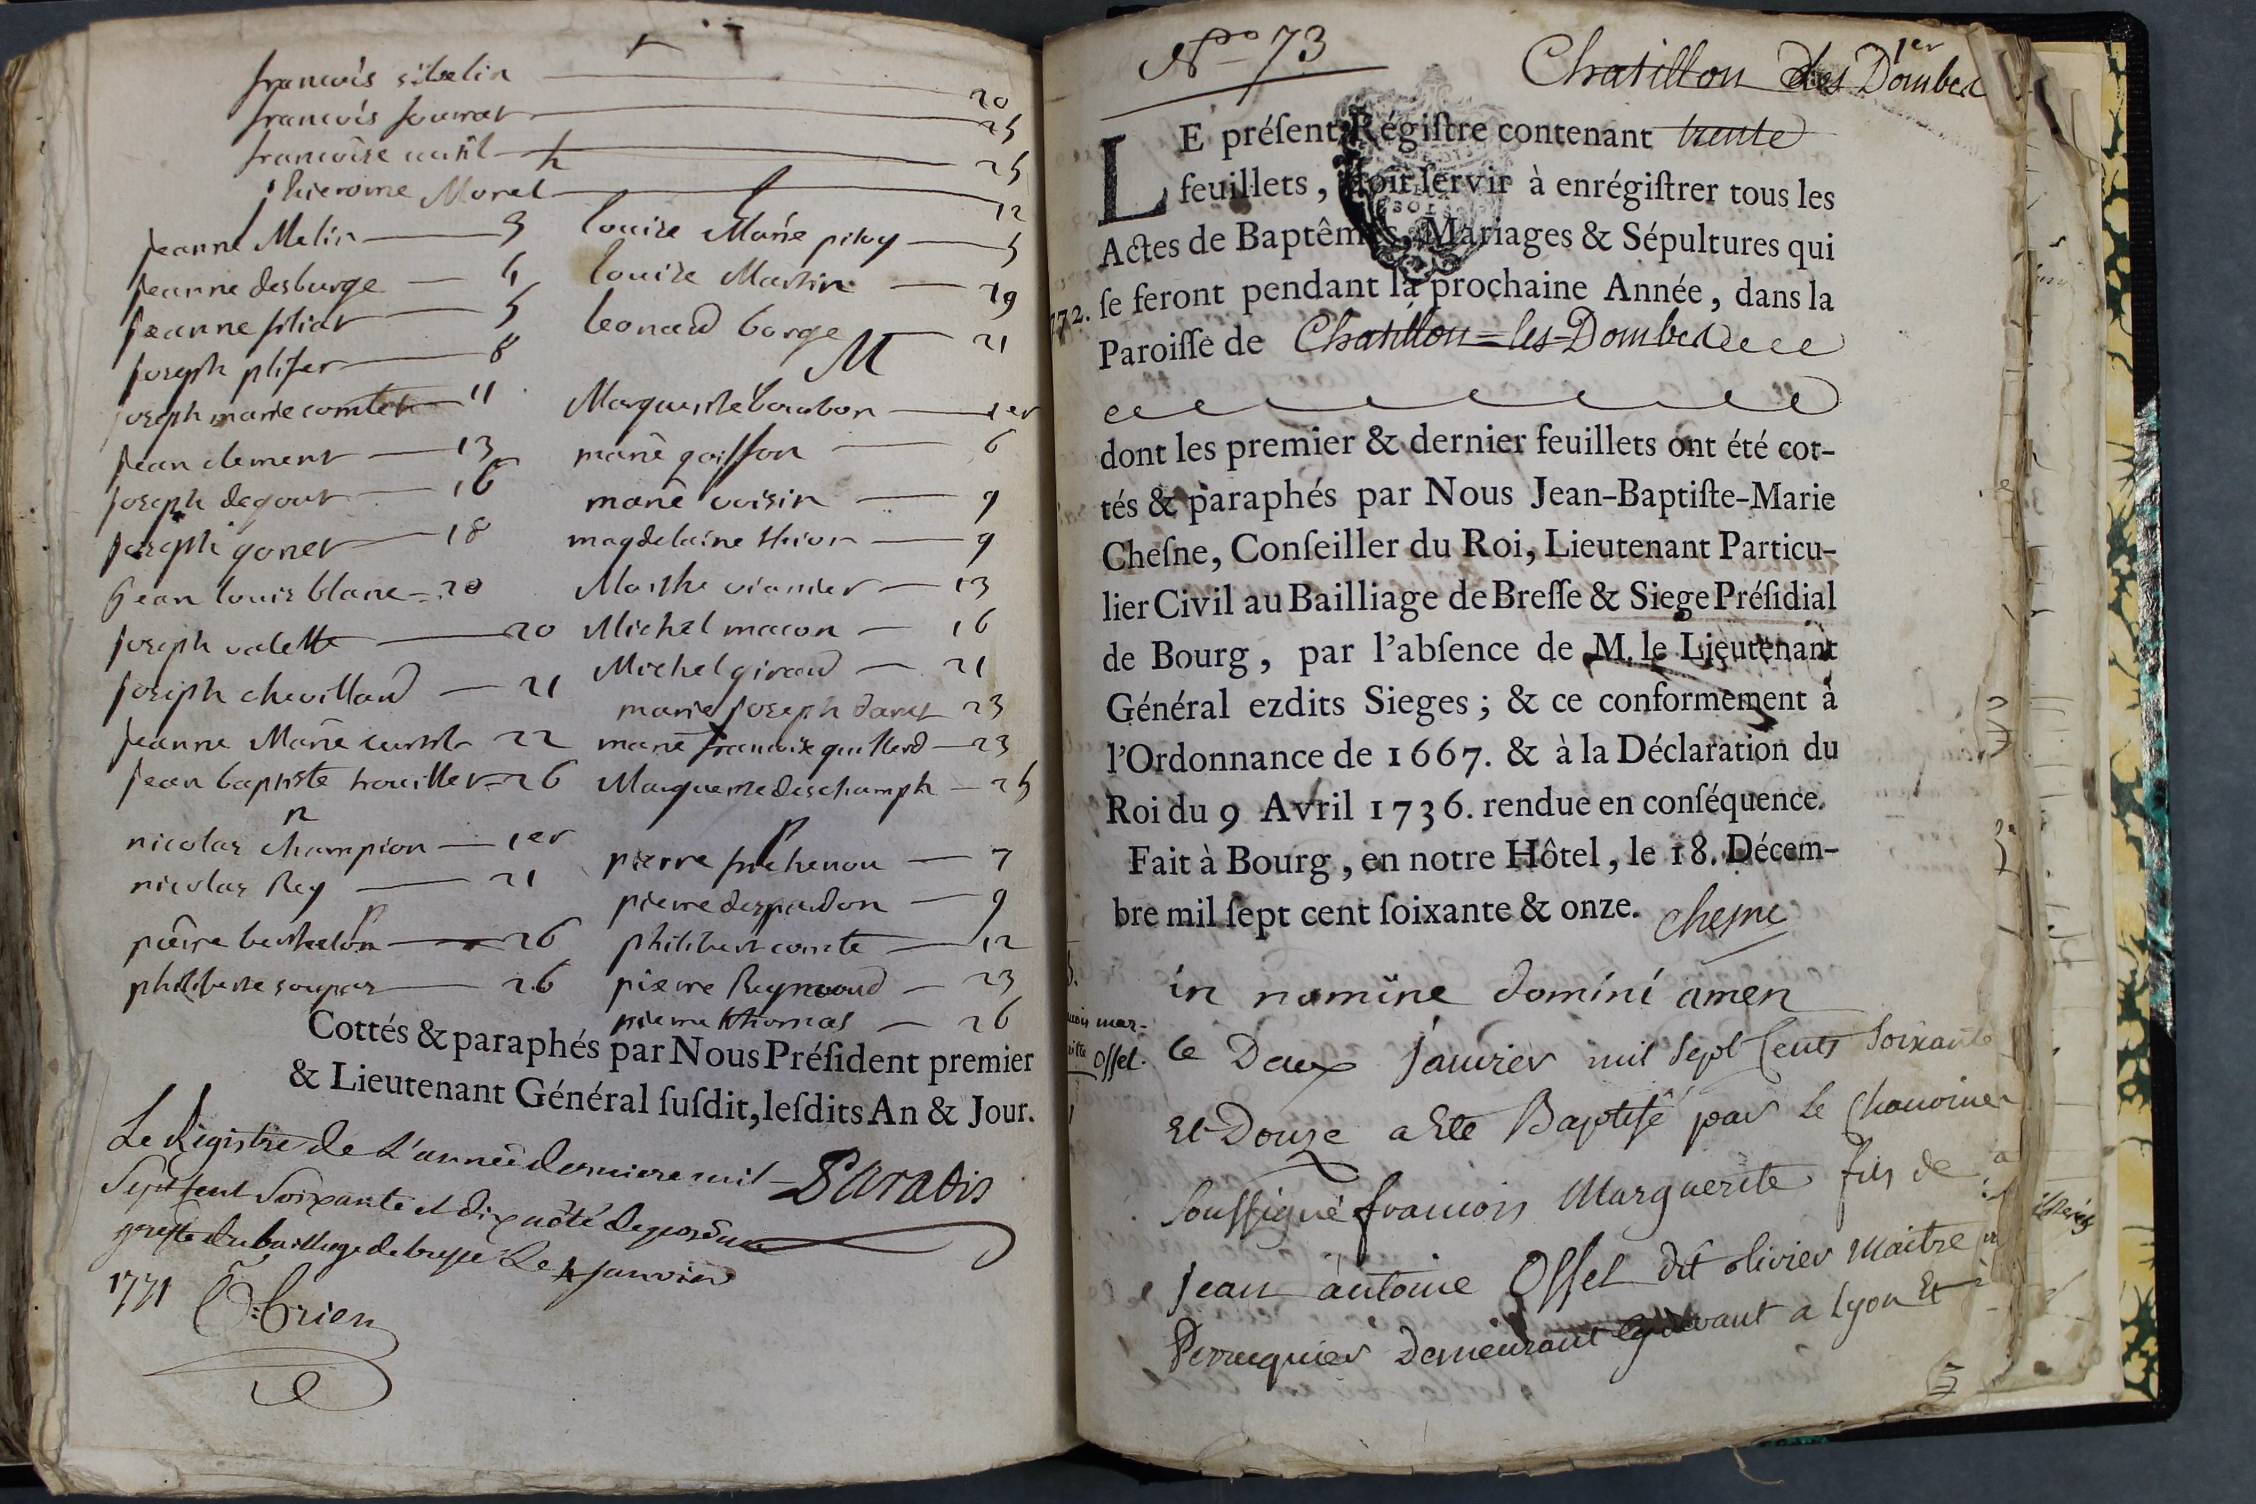 françois sibelin — 20
françois fourrat — 25
françoise curtil — 25
h
hierome Morel — 12
jeanne Melin — 3
jeanne desburge — 4
jeanne filiat — 5
joseph plifer — 8
joseph marie comte — 11
jean clement — 13
joseph degout — 16
joseph gonet — 18
jean louis blanc = 20
joseph valette — 20
joseph chevilland — 21
jeanne Marie curtil — 22
jean baptiste trouillet = 26
n
nicolas champion — 1er
nicolas Rey — 21
p
pierre berthelon — 26
philiberte soupas — 26
l
louise Marie pitoy — 5
louise Martin — 19
leonard borge — 21
M
Marguerite bourbon — 1er
marie goiffon — 6
marie voisin — 9
magdelaine thion — 9
Marthe vianier — 13
Michel macon — 16
Michel giraud — 21
marie joseph daret 23
marie françoise guillerd — 23
Marguerite deschamph — 25
p
pierre frichenou — 7
pierre despardon — 9
philibert comte — 12
pierre Reymond — 23
pierre thomas — 26
Cottés & paraphés par Nous Préſident premier
& Lieutenant Général ſuſdit, leſdits An & Jour.
Paradis
Le Registre de L'année derniere mil
Sept Cent Soixante et dix a été deposé au
greffe du bailliage de bresse Le 4 janvier
1771 Brien
No 73
1er
Chatillon des Dombes
LE préſent Régiſtre contenant trente
feuillets, doit ſervir à enrégiſtrer tous les
Actes de Baptêmes, Mariages & Sépultures qui
1772. ſe feront pendant la prochaine Année, dans la
Paroiſſe de Chatillon=les=Dombes
dont les premier & dernier feuillets ont été cot-
tés & paraphés par Nous Jean-Baptiſte-Marie
Cheſne, Conſeiller du Roi, Lieutenant Particu-
lier Civil au Bailliage de Breſſe & Siege Préſidial
de Bourg, par l'abſence de M. le Lieutenant
Général ezdits Sieges ; & ce conformement à
l'Ordonnance de 1667. & à la Déclaration du
Roi du 9 Avril 1736. rendue en conſéquence.
Fait à Bourg, en notre Hôtel, le 18. Décem-
bre mil ſept cent ſoixante & onze. Chesne
in nomine domini amen
mar-
Offel.
Le Deux janvier mil Sept Cents Soixante
Et Douze a Ete Baptisé par Le Chanoine
Soussigné françois Marguerite fils de
jean antoine Offel dit olivier Maitre
Perruquier Demeurant cy devant a Lyon Et